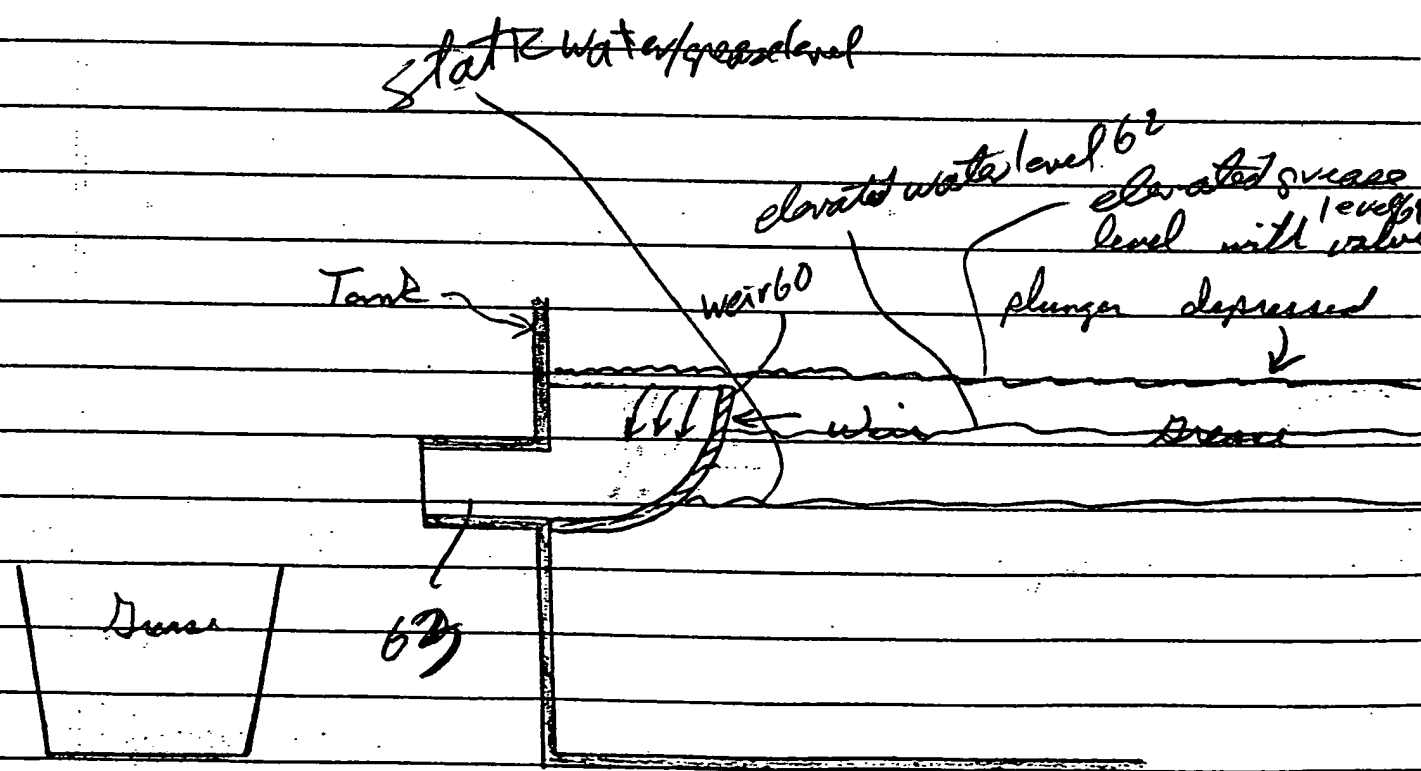 static water/grease level
elevated water level 62
elevated grease
level
level with valve
plunger depressed
Tank
weir 60
Weir
Grease
Grease